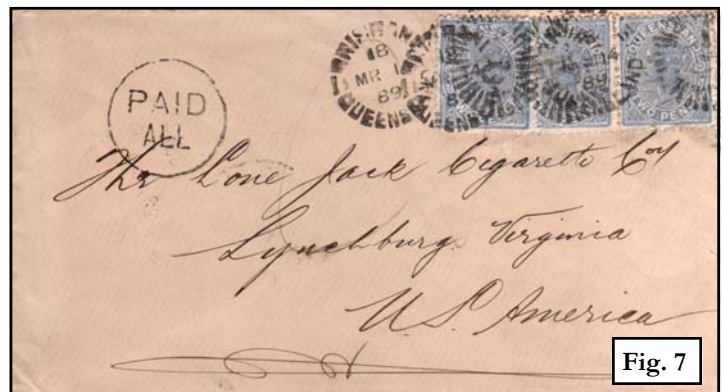 PAID
ALL
18
MR 1
89
QUEENS
QUEENSLAND
TWO PENCE
The Lone Jack Cigarette Coy
Lynchburg Virginia
U.S. America
Fig. 7